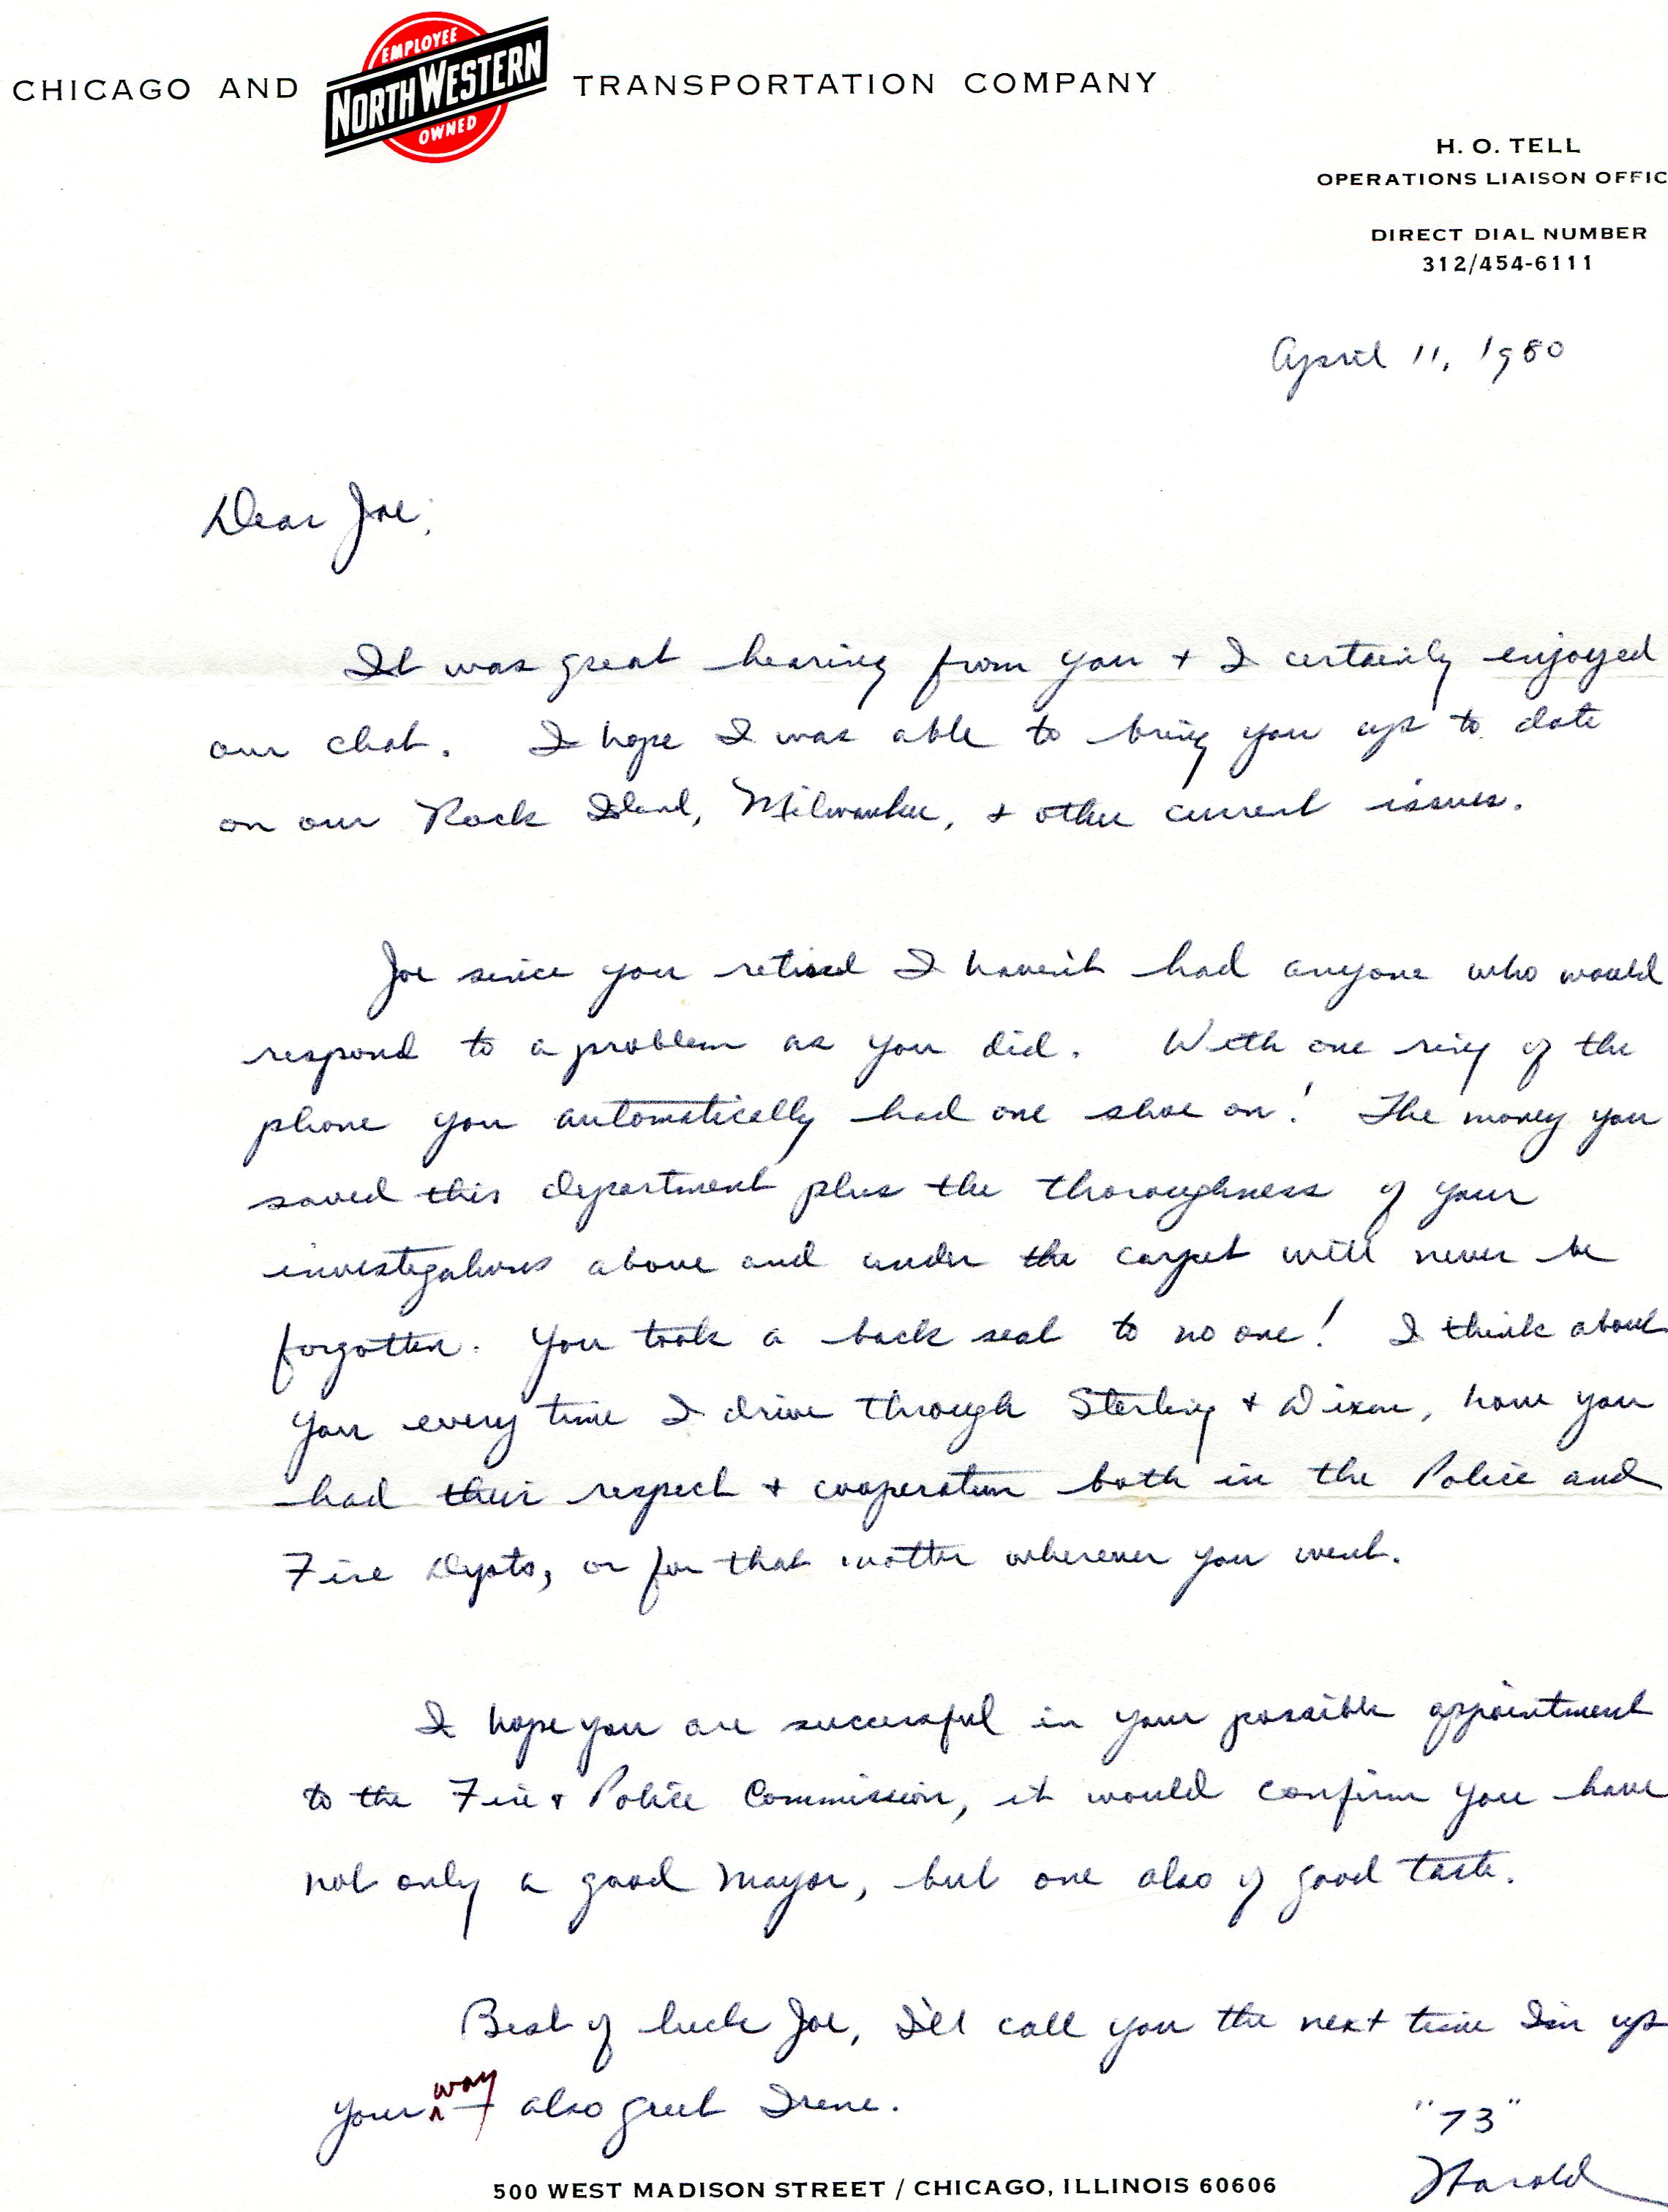 CHICAGO AND EMPLOYEE NORTH WESTERN OWNED TRANSPORTATION COMPANY
H. O. TELL
OPERATIONS LIAISON OFFIC
DIRECT DIAL NUMBER
312/454-6111
April 11, 1980
Dear Joe;
It was great hearing from you + I certainly enjoyed
our chat. I hope I was able to bring you up to date
on our Rock Island, Milwaukee, + other current issues.
Joe since you retired I haven't had anyone who would
respond to a problem as you did. With one ring of the
phone you automatically had one shoe on! The money you
saved this department plus the thoroughness of your
investigations above and under the carpet will never be
forgotten. You took a back seat to no one! I think about
you every time I drive through Sterling + Dixon, how you
had their respect + cooperation both in the Police and
Fire Depts, or for that matter wherever you went.
I hope you are successful in your possible appointment
to the Fire + Police Commission, it would confirm you have
not only a good Mayor, but one also of good taste.
Best of luck Joe, I'll call you the next time I'm up
your way - also greet Irene.
"73"
Harold
500 WEST MADISON STREET / CHICAGO, ILLINOIS 60606